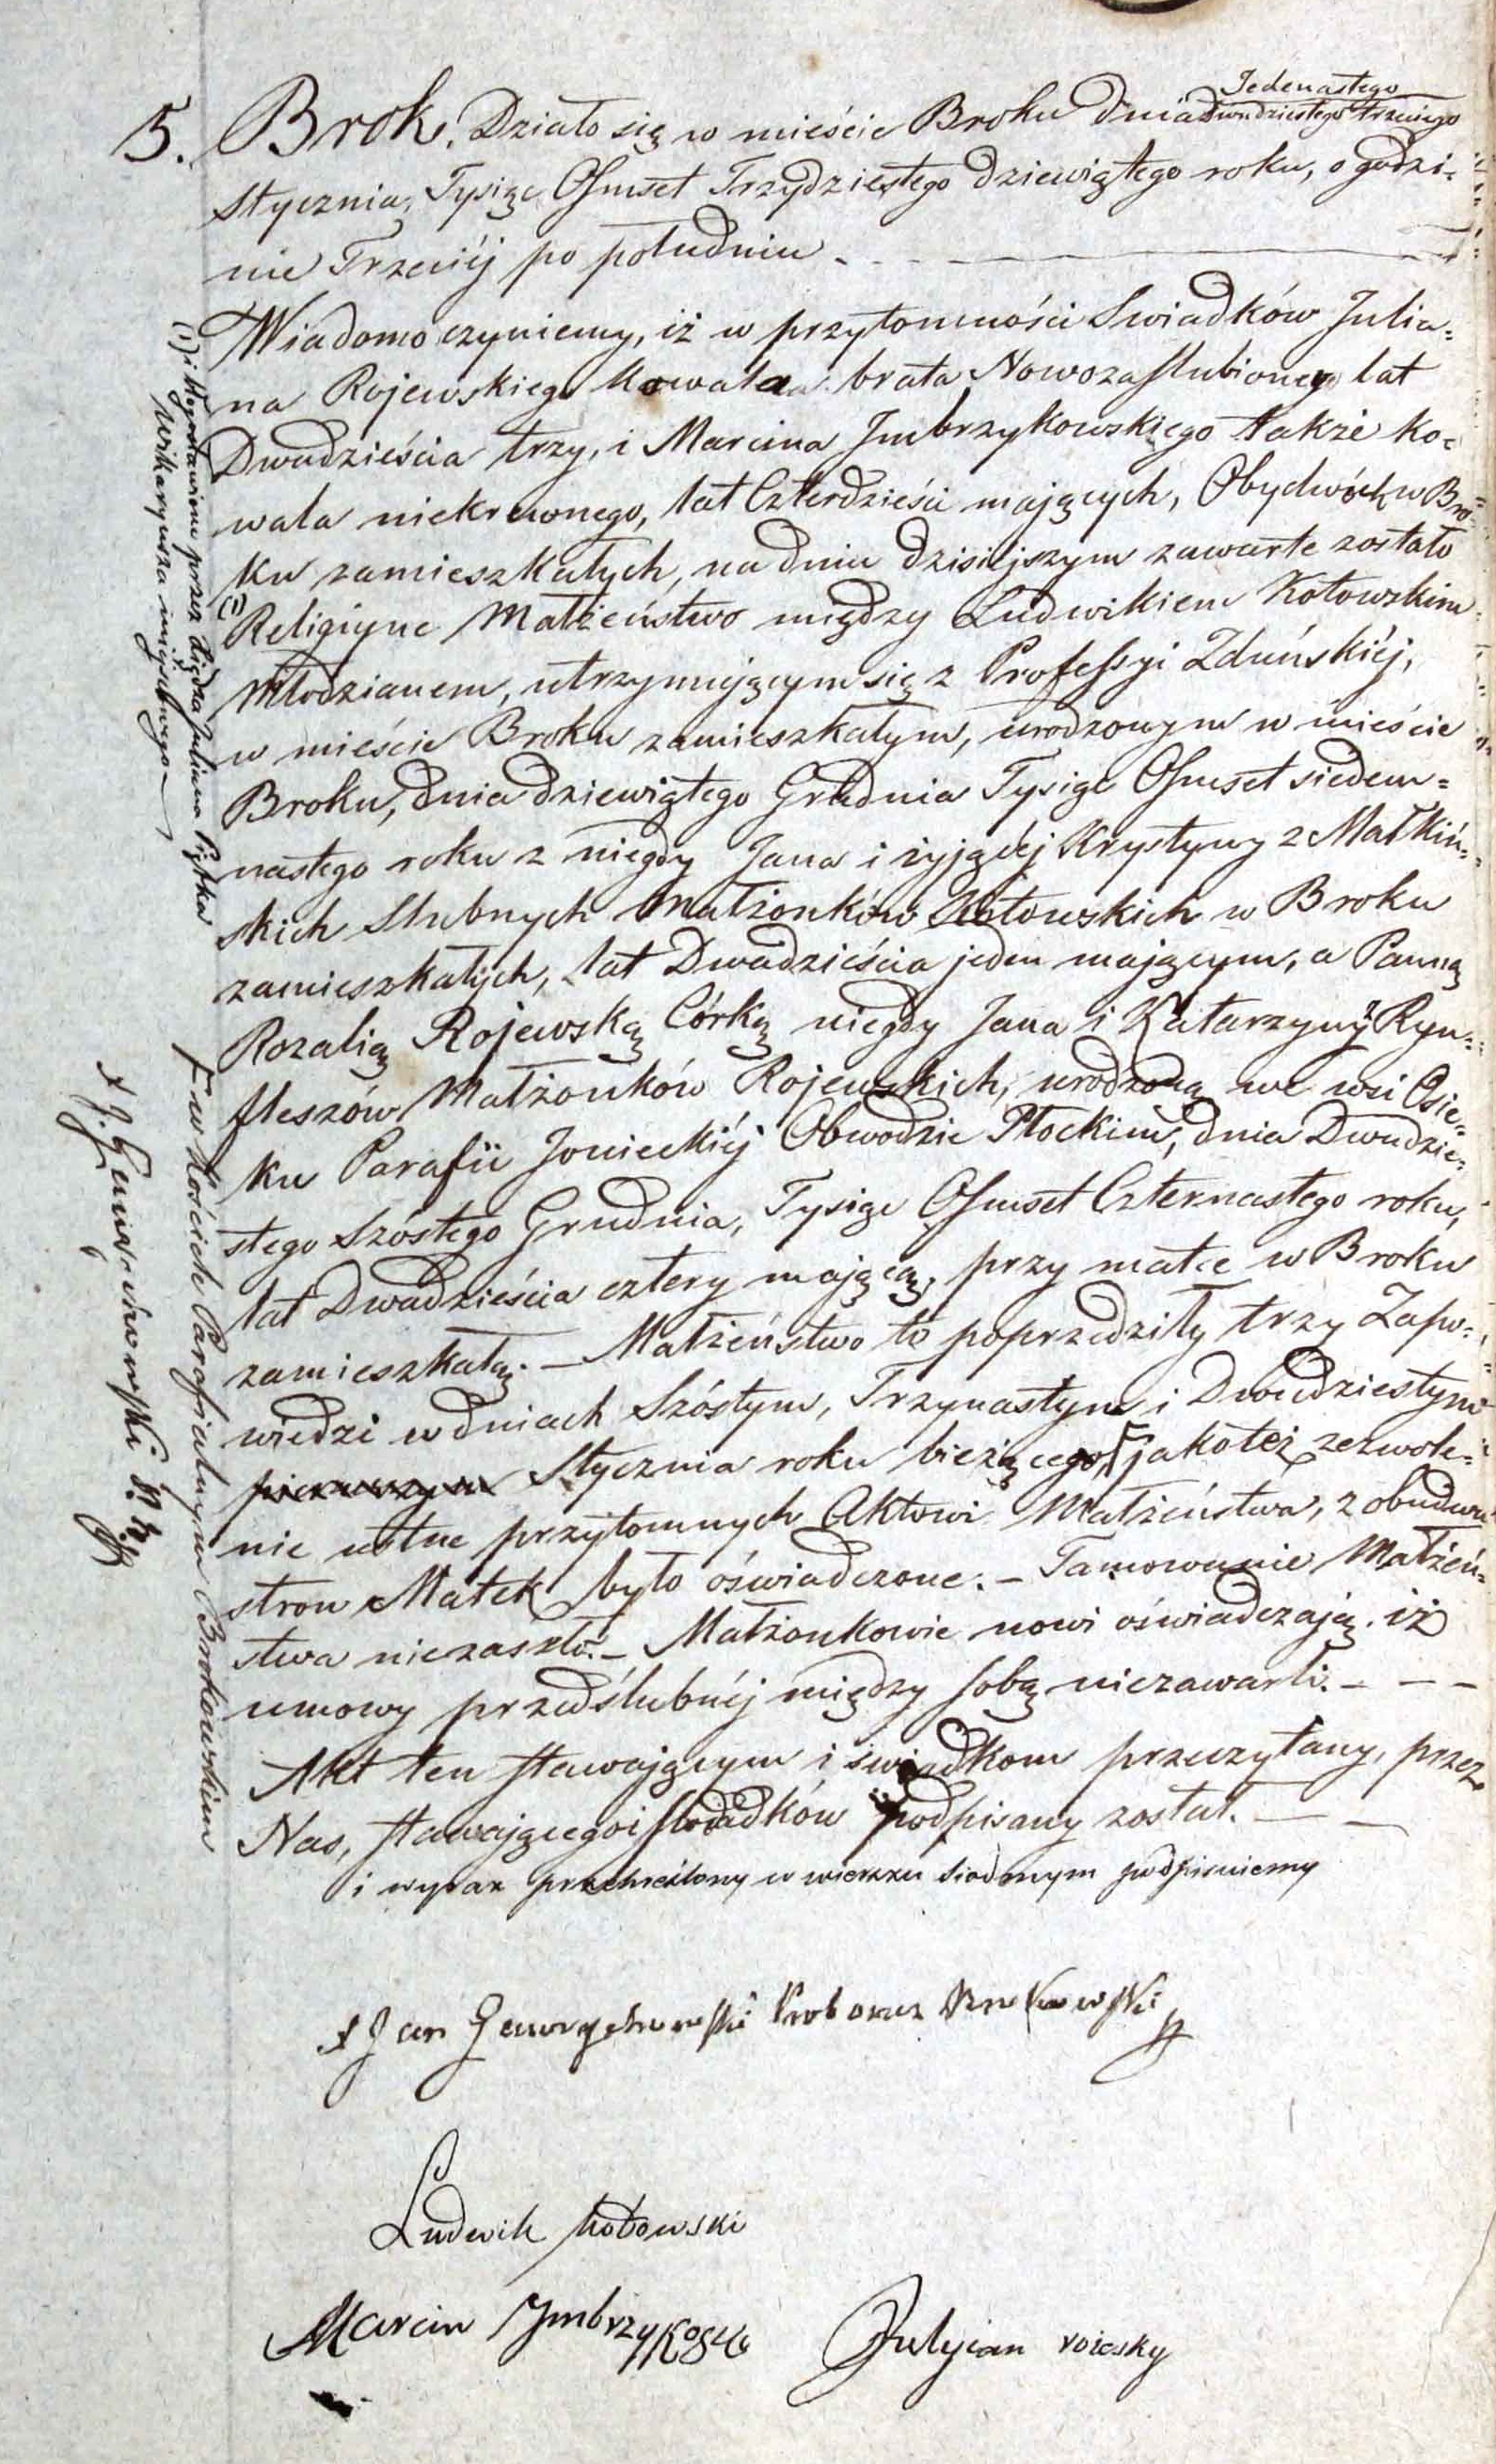 Jedenastego
5. Brok. Działo się w mieście Broku dnia Dwudziestego trzeciego
Stycznia, Tysiąc Ośmset Trzydziestego dziewiątego roku, o godzi-
nie Trzeciéj po południu -
Wiadomo czyniemy, iż w przytomności Swiadków Julia-
na Rojewskiego Kowala brata Nowozaślubionej lat
Dwadzieścia trzy, i Marcina Jmbrzykowskiego także ko-
wala niekrewnego, lat Czterdzieści mających, Obydwóch w Bro-
ku zamieszkałych, na dniu dzisiejszym zawarte zostało
(1) Religijne Małżeństwo między Ludwikiem Kołowskim
Młodzianem, utrzymującym się z Professyi Zduńskiéj,
w mieście Broku zamieszkałym, urodzonym w mieście
Broku, dnia dziewiątego Grudnia Tysiąc Ośmset siedem-
nastego roku z niegdy Jana i żyjącéj Krystyny z Małkiń-
skich Slubnych Małżonków Kołowskich w Broku
zamieszkałych, lat Dwadzieścia jeden mającym, a Panną
Rozalią Rojewską Córką niegdy Jana i Katarzyny z Ryn-
fleszów Małżonków Rojewskich, urodzoną we wsi Osie-
ku Parafii Jonieckiéj Obwodzie Płockim, dnia Dwudzie-
stego Szóstego Grudnia, Tysiąc Ośmset Czternastego roku,
lat Dwadzieścia cztery mającą, przy matce w Broku
zamieszkałą. - Małżeństwo to poprzedziły trzy Zapo-
wiedzi w dniach Szóstym, Trzynastym i Dwudziestym
pierwszym Stycznia roku bieżącego, F jakoteż zezwole-
nie ustne przytomnych Aktowi Małżeństwa, z obudwu
stron Matek było oświadczone. - Tamowanie Małżeń-
stwa niezaszło. - Małżonkowie nowi oświadczają, iż
umowy przedślubnéj między sobą niezawarli. - - -
Akt ten stawającym i świadkom przeczytany, przez
Nas, stawającego i Swiadków podpisany został. - -
i wyraz przekreślony w wierszu siodmym podpisuiemy
X Jan Proboszcz Brokowski
Ludwik Kołowski
Marcin Jmbrzykoski Julyian roiesky
(1) i błogosławione przez Księdza Juliana Piętka
Wikaryusza miejscowego -
F w Kościele Parafialnym Brokowskim
X J.